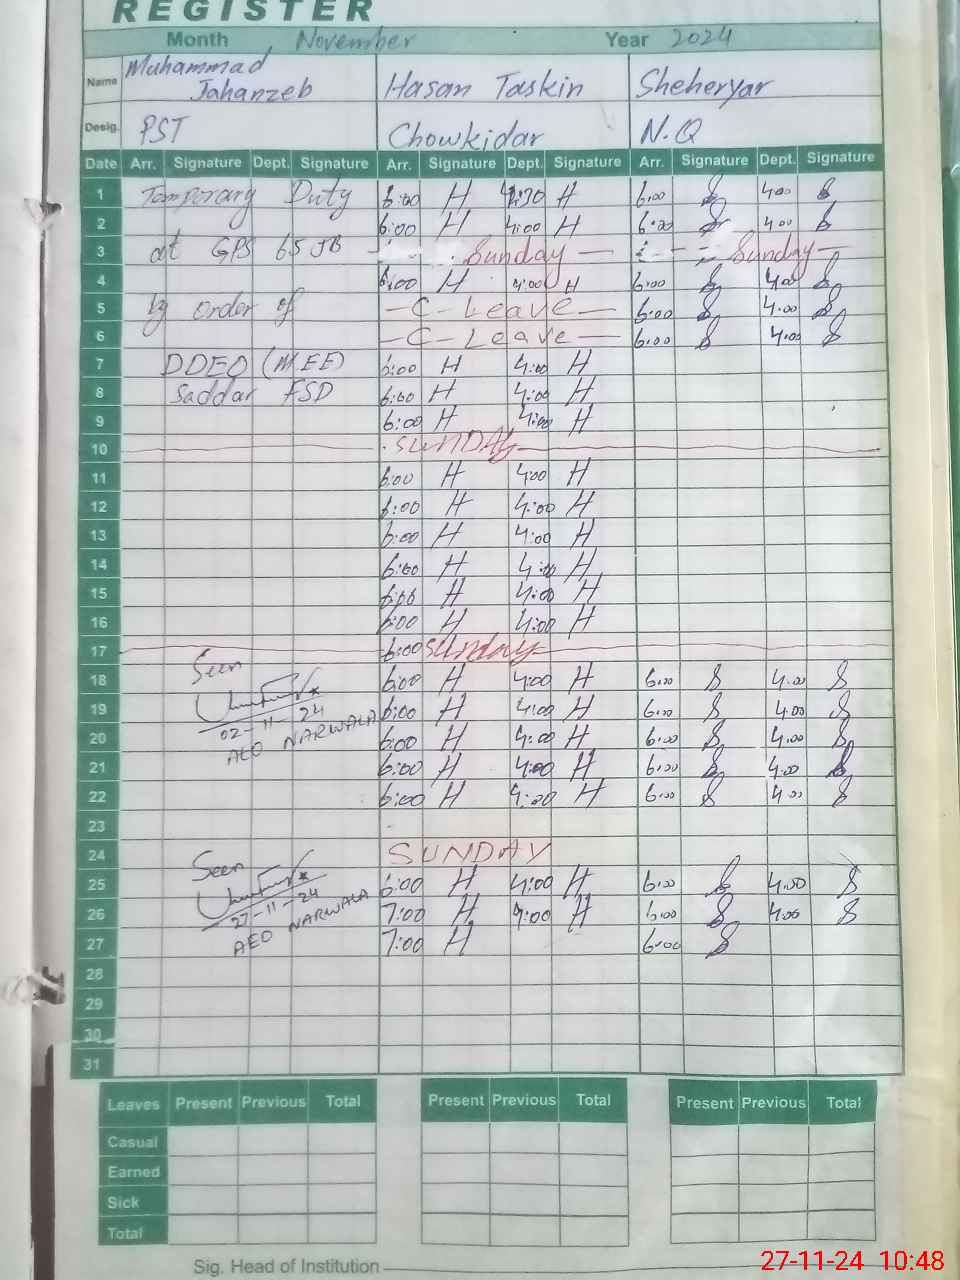 REGISTER
Month November Year 2024
Name Muhammad Jahanzeb Hasan Taskin Sheheryar
Desig. PST Chowkidar N.Q
Date Arr. Signature Dept. Signature Arr. Signature Dept. Signature Arr. Signature Dept. Signature
1 Temporary Duty 6:00 H 4:30 H 6:00 S 4:00 S
2 6:00 H 4:00 H 6:00 S 4:00 S
3 at GPS 65 JB Sunday Sunday
4 6:00 H 4:00 H 6:00 S 4:00 S
5 by order of C-Leave 6:00 S 4:00 S
6 C-Leave 6:00 S 4:00 S
7 DDEO (MEE) 6:00 H 4:00 H
8 Saddar FSD 6:00 H 4:00 H
9 6:00 H 4:00 H
10 SUNDAY
11 6:00 H 4:00 H
12 6:00 H 4:00 H
13 6:00 H 4:00 H
14 6:00 H 4:00 H
15 6:00 H 4:00 H
16 6:00 H 4:00 H
17 6:00 Sunday
18 Seen 6:00 H 4:00 H 6:00 S 4:00 S
19 02-11-24 6:00 H 4:00 H 6:00 S 4:00 S
20 AEO NARWALA 6:00 H 4:00 H 6:00 S 4:00 S
21 6:00 H 4:00 H 6:00 S 4:00 S
22 6:00 H 4:00 H 6:00 S 4:00 S
23
24 SUNDAY
25 Seen 6:00 H 4:00 H 6:00 S 4:00 S
26 27-11-24 7:00 H 4:00 H 6:00 S 4:00 S
27 AEO NARWALA 7:00 H 6:00 S
28
29
30
31
Leaves Present Previous Total Present Previous Total Present Previous Total
Casual
Earned
Sick
Total
Sig. Head of Institution
27-11-24 10:48